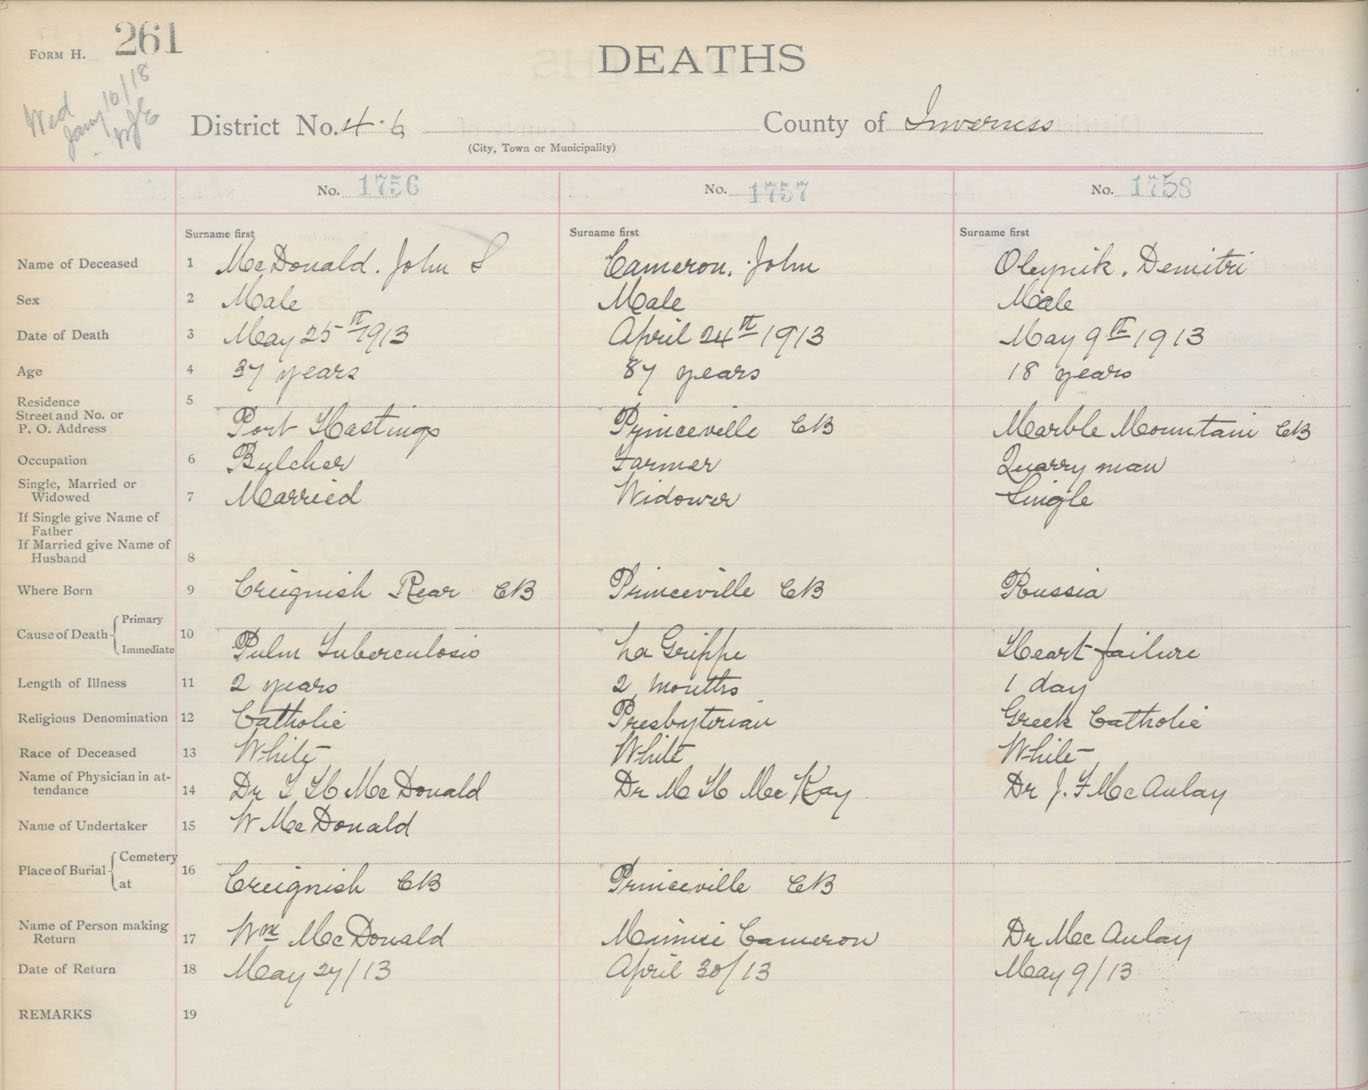 FORM H. 261
DEATHS
Wed
Jany 16/18
District No. 4.6 County of Inverness
(City, Town or Municipality)
No. 1756 No. 1757 No. 1758
Surname first Surname first Surname first
Name of Deceased 1 McDonald. John S Cameron. John Oleynik. Demitri
Sex 2 Male Male Male
Date of Death 3 May 25th 1913 April 24th 1913 May 9th 1913
Age 4 37 years 87 years 18 years
Residence 5
Street and No. or
P. O. Address Port Hastings Princeville CB Marble Mountain CB
Occupation 6 Butcher Farmer Quarry man
Single, Married or
Widowed 7 Married Widower Single
If Single give Name of
Father
If Married give Name of
Husband 8
Where Born 9 Creignish Rear CB Princeville CB Russia
Cause of Death { Primary 10
Immediate Pulm Tuberculosis La Grippe Heart failure
Length of Illness 11 2 years 2 months 1 day
Religious Denomination 12 Catholic Presbyterian Greek Catholic
Race of Deceased 13 White White White
Name of Physician in at-
tendance 14 Dr McDonald Dr M H McKay Dr J. F McAulay
Name of Undertaker 15 W McDonald
Place of Burial { Cemetery 16
at Creignish CB Princeville CB
Name of Person making
Return 17 Wm McDonald Minnie Cameron Dr McAulay
Date of Return 18 May 27/13 April 30/13 May 9/13
REMARKS 19